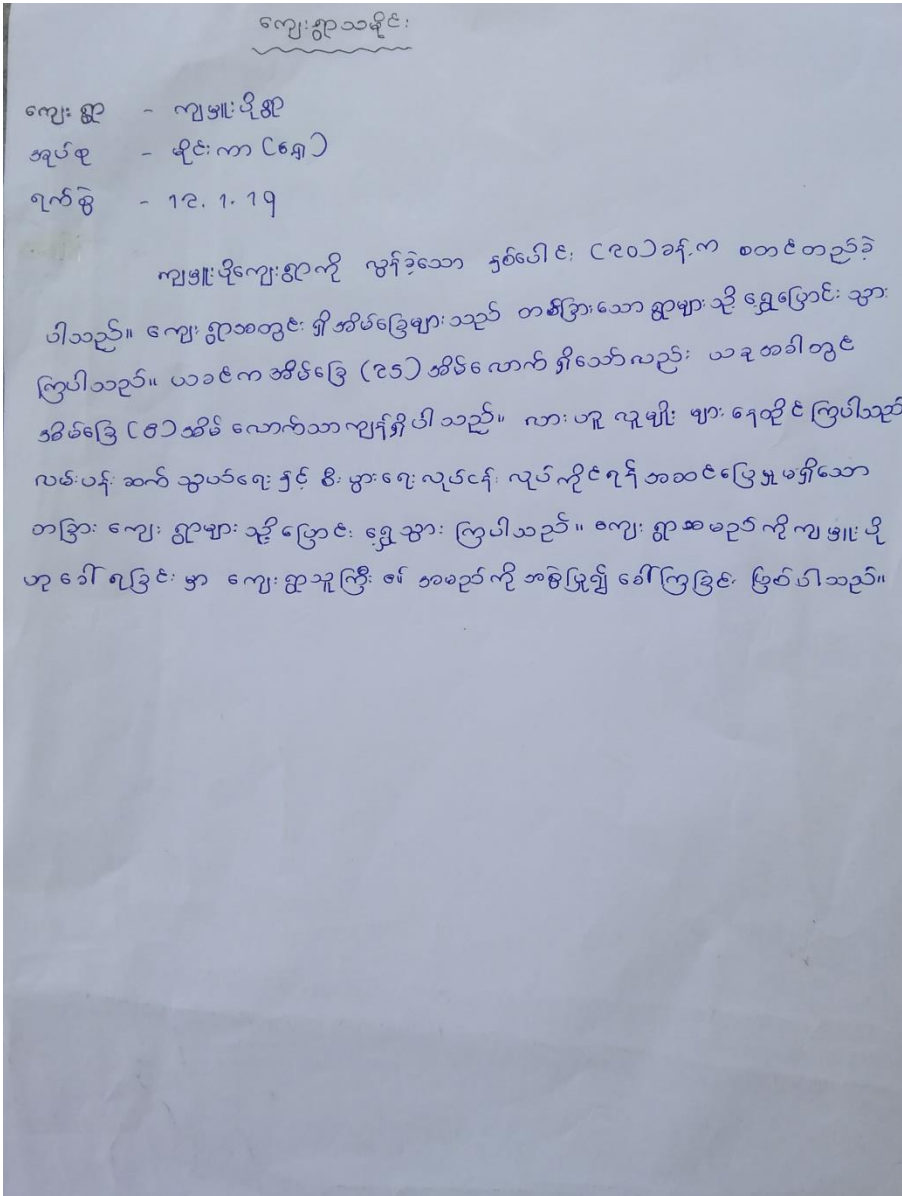 ကျေးရွာသမိုင်း
ကျေးရွာ - ကျဖျူးပိုရွာ
အုပ်စု - မိုင်းကာ (ရှေ့)
ရက်စွဲ - ၁၉.၁.၁၅
ကျဖျူးပိုကျေးရွာကို လွန်ခဲ့သော နှစ်ပေါင်း (၉၀)ခန့်က စတင်တည်ခဲ့
ပါသည်။ ကျေးရွာအတွင်းရှိ အိမ်ခြေများသည် တစ်ခြားသော ရွာများသို့ ရွှေ့ပြောင်းသွား
ကြပါသည်။ ယခင်က အိမ်ခြေ (၃၅) အိမ်လောက် ရှိသော်လည်း ယခုအခါတွင်
အိမ်ခြေ (၈) အိမ် လောက်သာကျန်ရှိပါသည်။ လားဟူ လူမျိုး များ နေထိုင်ကြပါသည်
လမ်းပန်း ဆက်သွယ်ရေး နှင့် စီးပွားရေးလုပ်ငန်း လုပ်ကိုင်ရန် အဆင်ပြေမှုမရှိသော
တခြား ကျေးရွာများသို့ ပြောင်းရွှေ့သွား ကြပါသည်။ ကျေးရွာအမည်ကို ကျဖျူးပို
ဟု ခေါ်ရခြင်းမှာ ကျေးရွာသူကြီး ၏ အမည်ကို အစွဲပြု၍ ခေါ်ကြခြင်း ဖြစ်ပါသည်။